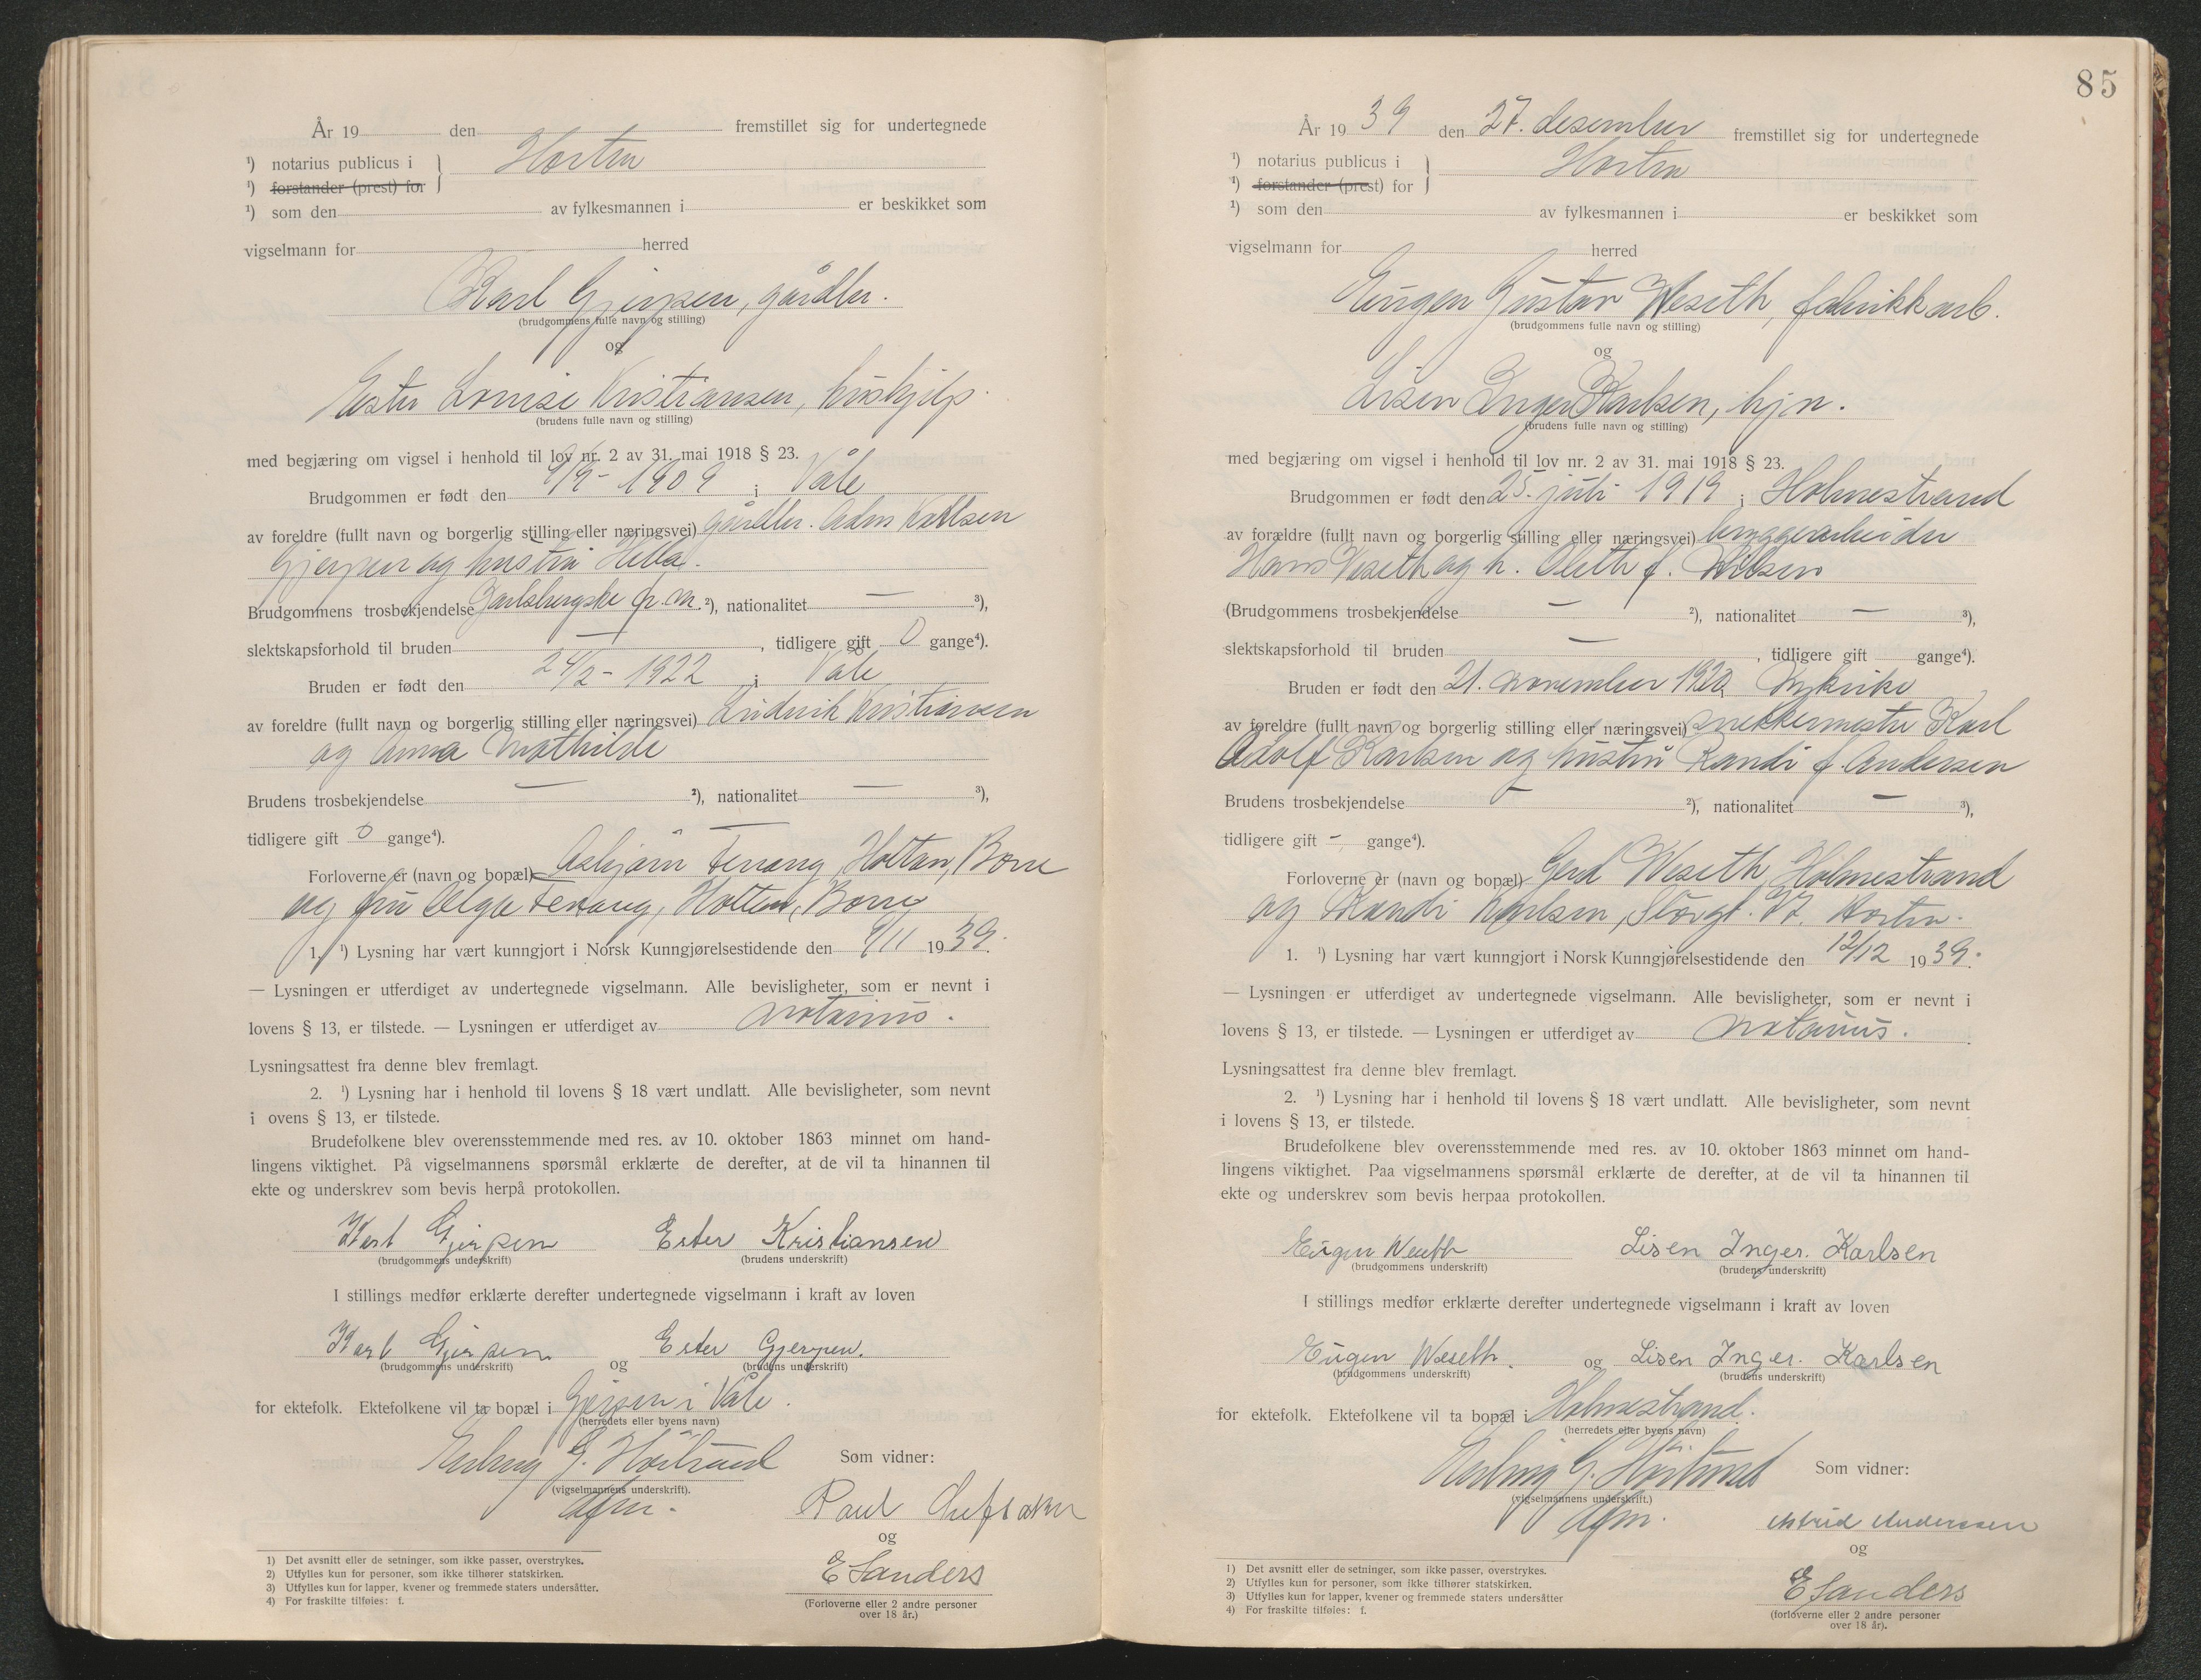 År 19 den fremstillet sig for undertegnede
¹) notarius publicus i Horten
¹) forstander (prest) for
¹) som den av fylkesmannen i er beskikket som
vigselmann for herred
Karl Gjerpen, gårdbr.
(brudgommens fulle navn og stilling)
og
Ester Louise Kristiansen, hushjelp.
(brudens fulle navn og stilling)
med begjæring om vigsel i henhold til lov nr. 2 av 31. mai 1918 § 23.
Brudgommen er født den 9/9 - 1909 i Våle
av foreldre (fullt navn og borgerlig stilling eller næringsvei) gårdbr. Adm Karlsen
Gjerpen og hustru Hilda.
Brudgommens trosbekjendelse Jarlsbergske fr. m. ²), nationalitet — ³),
slektskapsforhold til bruden —, tidligere gift 0 gange⁴).
Bruden er født den 24/2 - 1922 i Våle
av foreldre (fullt navn og borgerlig stilling eller næringsvei) Kristiansen
og Anna Mathilde
Brudens trosbekjendelse — ²), nationalitet — ³),
tidligere gift 0 gange⁴).
Forloverne er (navn og bopæl) Asbjørn Fevang, Holtan, Borre
og fru Olga Fevang, Holtan, Borre
1. ¹) Lysning har vært kunngjort i Norsk Kunngjørelsestidende den 9/11 1939.
— Lysningen er utferdiget av undertegnede vigselmann. Alle bevisligheter, som er nevnt i
lovens § 13, er tilstede. — Lysningen er utferdiget av notarius.
Lysningsattest fra denne blev fremlagt.
2. ¹) Lysning har i henhold til lovens § 18 vært undlatt. Alle bevisligheter, som nevnt
i ovens § 13, er tilstede.
Brudefolkene blev overensstemmende med res. av 10. oktober 1863 minnet om hand-
lingens viktighet. På vigselmannens spørsmål erklærte de derefter, at de vil ta hinannen til
ekte og underskrev som bevis herpå protokollen.
Karl Gjerpen Ester Kristiansen
(brudgommens underskrift) (brudens underskrift)
I stillings medfør erklærte derefter undertegnede vigselmann i kraft av loven
Karl Gjerpen og Ester Gjerpen.
(brudgommens underskrift) (brudens underskrift)
for ektefolk. Ektefolkene vil ta bopæl i Gjerpen i Våle.
(herredets eller byens navn)
Erling G. Som vidner:
(vigselmannens underskrift).
Paul
og
E Sanders
(Forloverne eller 2 andre personer
over 18 år.)
1) Det avsnitt eller de setninger, som ikke passer, overstrykes.
2) Utfylles kun for personer, som ikke tilhører statskirken.
3) Utfylles kun for lapper, kvener og fremmede staters undersåtter.
4) For fraskilte tilføies: f.
85
År 1939 den 27. desember fremstillet sig for undertegnede
¹) notarius publicus i Horten
¹) forstander (prest) for
¹) som den av fylkesmannen i er beskikket som
vigselmann for herred
Eugen Gustav Weseth, fabrikkarb.
(brudgommens fulle navn og stilling)
og
Lisen Inger Karlsen, hjv.
(brudens fulle navn og stilling)
med begjæring om vigsel i henhold til lov nr. 2 av 31. mai 1918 § 23.
Brudgommen er født den 25. juli 1919 i Holmestrand
av forældre (fullt navn og borgerlig stilling eller næringsvei) bryggearbeider
Hans Weseth og h. Oleth f. Nilsen
(Brudgommens trosbekjendelse — ²), nationalitet — ³),
slektskapsforhold til bruden —, tidligere gift gange⁴).
Bruden er født den 21. november 1920 Nykirke
av foreldre (fullt navn og borgerlig stilling eller næringsvei) snekkermester Karl
Adolf Karlsen og hustru Randi f. Andersen
Brudens trosbekjendelse — ²), nationalitet — ³),
tidligere gift - gange⁴).
Forloverne er (navn og bopæl) Gerd Weseth Holmestrand
og Randi Karlsen, Storgt. 37. Horten.
1. ¹) Lysning har vært kunngjort i Norsk Kunngjørelsestidende den 12/12 1939.
— Lysningen er utferdiget av undertegnede vigselmann. Alle bevisligheter, som er nevnt i
lovens § 13, er tilstede. — Lysningen er utferdiget av notarius.
Lysningsattest fra denne blev fremlagt.
2. ¹) Lysning har i henhold til lovens § 18 vært undlatt. Alle bevisligheter, som nevnt
i lovens § 13, er tilstede.
Brudefolkene blev overensstemmende med res. av 10. oktober 1863 minnet om hand-
lingens viktighet. Paa vigselmannens spørsmål erklærte de derefter, at de vil ta hinannen til
ekte og underskrev som bevis herpaa protokollen.
Eugen Weseth Lisen Inger. Karlsen
(brudgommens underskrift) (brudens underskrift)
I stillings medfør erklærte derefter undertegnede vigselmann i kraft av loven
Eugen Weseth. og Lisen Inger. Karlsen
(brudgommens underskrift) (brudens underskrift)
for ektefolk. Ektefolkene vil ta bopæl i Holmestrand.
(herredets eller byens navn)
Erling G. Som vidner:
(vigselmannens underskrift.)
Astrid Anderssen
og
E Sanders
(forloverne eller 2 andre personer
over 18 år).
1) Det avsnitt eller de setninger, som ikke passer, overstrykes.
2) Utfylles kun for personer, som ikke tilhører statskirken.
3) Utfylles kun for lapper, kvener og fremmede staters undersåtter
4) For fraskilte tilføies: f.